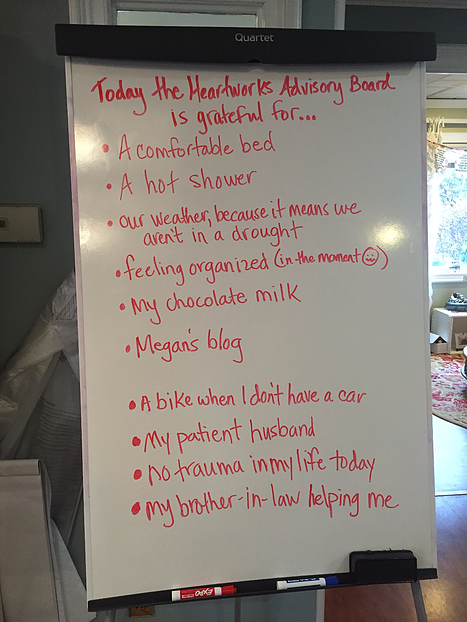 Quartet
Today the Heartworks Advisory Board
is grateful for...
• A comfortable bed
• A hot shower
• our weather, because it means we
aren't in a drought
• feeling organized (in the moment ☺)
• My chocolate milk
• Megan's blog
• A bike when I don't have a car
• My patient husband
• no trauma in my life today
• my brother-in-law helping me
EXPO